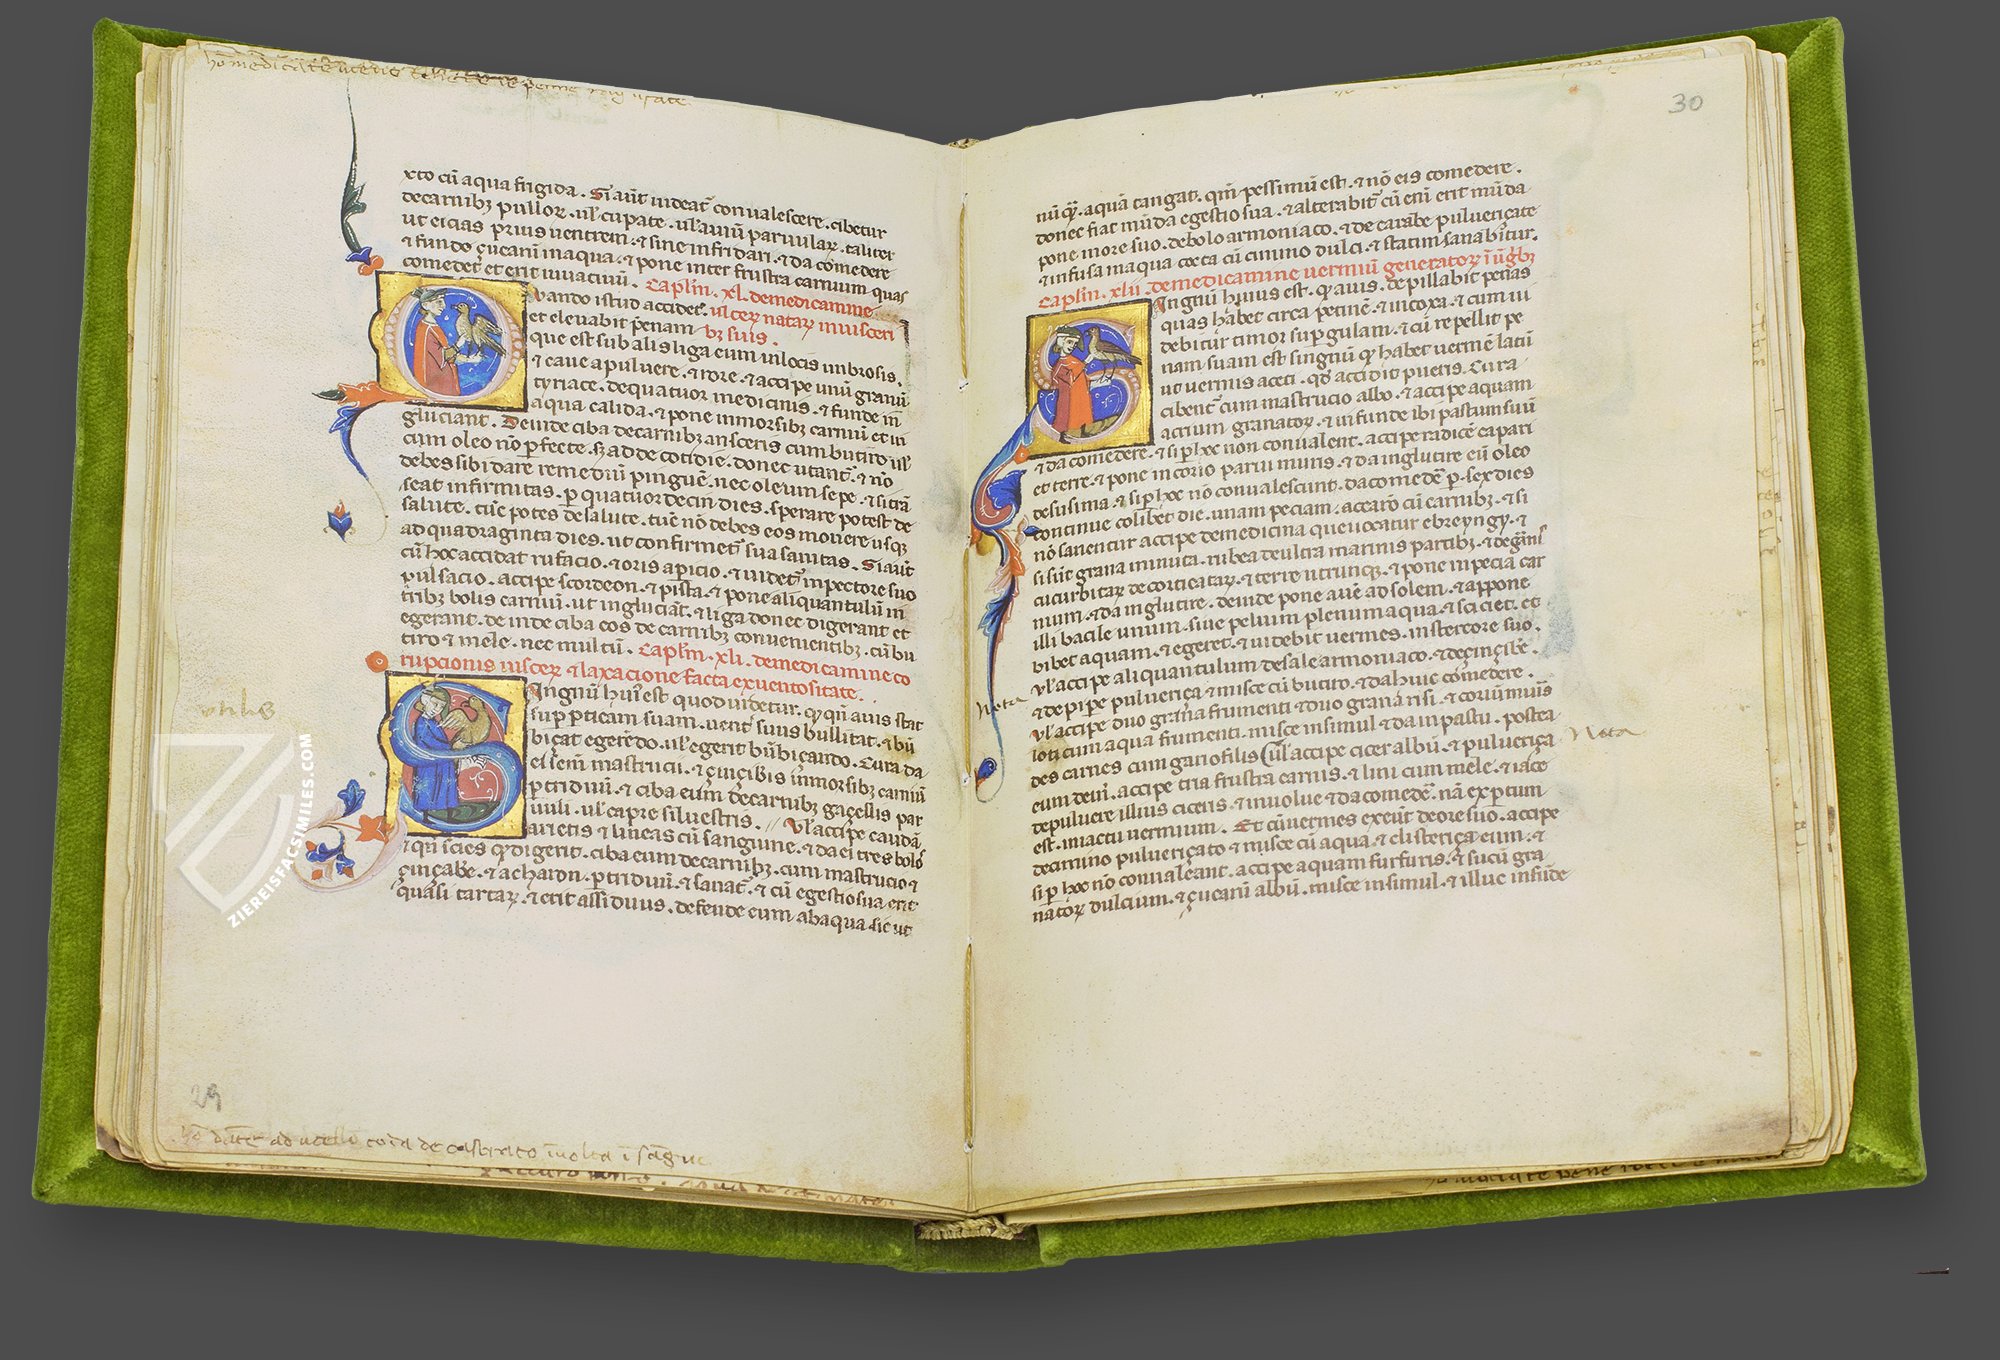 xto cū aqua frigida. Si aūt uideat᷑ conualescere. cibetur
de carnibꝫ pulloꝝ. ul᷑ cupate. ul᷑ auiū paruulaꝝ. taliter
ut eicias prius uentrem. ⁊ sine infridari. ⁊ da comedere
⁊ fundo çucarū in aqua. ⁊ pone inter frustra carnium quas
comedet᷑ et erit iuuatiuū. Caplm̄. xl. de medicamine
uando istud accidet᷑. ulceꝝ nataꝝ in uisceri
et eleuabit pēnam bꝫ suis.
que est sub alis liga eum in locis umbrosis.
⁊ caue a puluere. ⁊ rore. ⁊ accipe unū granū
tyriace. de quatuor medicinis. ⁊ funde in
aqua calida. ⁊ pone in morsibꝫ carniū et in
gluciant. Deinde ciba de carnibꝫ anseris cum butiro ul᷑
cum oleo nō ꝑfecte. sꝫ ad de cotidie. donec utant᷑. ⁊ nō
debes sibi dare remediū pinguē. nec oleum sepe. ⁊ si trā
seat infirmitas. ꝑ quatuordecim dies. sperare potest de
salute. tūc potes de salute. tūc nō debes eos mouere usqꝫ
ad quadraginta dies. ut confirmet᷑ sua sanitas. Si aūt
cū hoc accidat rufacio. ⁊ oris apicio. ⁊ uidet᷑ in pectore suo
pulsacio. accipe scordeon. ⁊ pista. ⁊ pone aliquantulū in
tribꝫ bolis carniū. ut inglucia͞t. ⁊ liga donec digerant et
egerant. de inde ciba eos de carnibꝫ conuenientibꝫ. cū bu
tiro ⁊ mele. nec multū. Caplm̄. xli. de medicamine co
rupcionis uisceꝝ ⁊ laxacione facta ex uentositate.
ingnū hui᷑ est quod uidetur. qꝫ qn̄ auis stat
sup ꝑticam suam. uent᷑ suus bulliat. ⁊ bū
bicat egerēdo. ul᷑ egerit būbiçando. Cura da
ei sem̄ mastrucii. ⁊ çinçibis in morsibꝫ carniū
ꝑ triduū. ⁊ ciba eum de carnibꝫ gaçellis par
uuli. ul᷑ capre siluestris. Vl᷑ accipe caudā
arietis ⁊ lineas cū sanguine. ⁊ da ei tres bolos
⁊ qn̄ scies qꝫ digerit. ciba eum de carnibꝫ. cum mastrucio ⁊
çinçabe. ⁊ acharon. ꝑ triduū. ⁊ sanat᷑. ⁊ cū egestio sua erit
quasi tartaꝝ. ⁊ erit assiduus. defende eum ab aqua sic ut
utilis
29
30
nūqꝫ. aquā tangat. qm̄ pessimū est. ⁊ nō eis comedere.
donec fiat mūda egestio sua. ⁊ alterabit᷑ cū eni erit mūda
pone more suo. de bolo armoniaco. ⁊ de carabe pulueriçate
⁊ infusa in aqua cocta cū cimino dulci. ⁊ statim sanabitur.
Caplm̄. xlii de medicamine uermiū generatoꝝ ī
ingnū huius est. qꝫ auis. depillabit pēnas
quas habet circa petinē. ⁊ in coxa. ⁊ cum ui
debitur timor sup gulam. ⁊ cū repellit pe
nam suam est singnū qꝫ habet uermē latū
ut uermis aceti. qd̄ accidit pueris. Cura
cibent᷑ cum mastrucio albo. ⁊ accipe aquam
acrium granatoꝝ. ⁊ infunde ibi pastum suū
⁊ da comedere. ⁊ si ꝑ hec non conualent. accipe radicē capari
et terre. ⁊ pone in corio parui muris. ⁊ da inglutire eū oleo
de susima. ⁊ si ꝑ hec nō conualescunt. da comedē ꝑ. sex dies
continue colibet die. unam peciam. accarō cū carnibꝫ. ⁊ si
nō sanentur accipe de medicina que uocatur ebreyngy. ⁊
si sūt grana minuta. rubea de ultra marinis partibꝫ. ⁊ de granis
cucurbitaꝝ decorticataꝝ. ⁊ terre utrunqꝫ. ⁊ pone in pecia car
nium. ⁊ da inglutire. deinde pone auē ad solem. ⁊ appone
illi bacile unum. siue peluim plenum aqua. ⁊ si sciet. et
bibet aquam. ⁊ egeret. ⁊ uidebit uermes. in stercore suo.
Vl᷑ accipe aliquantulum de sale armoniaco. ⁊ de çinçibē.
⁊ de pipe pulueriça ⁊ misce cū butiro. ⁊ da huic comedere.
Vl᷑ accipe duo grana frumenti ⁊ duo grana risi. ⁊ coriū muris
loti cum aqua frumenti. misce insimul ⁊ da in pastu. postea
des carnes cum gariofilis (ul᷑ accipe cicer albū. ⁊ pulueriça
eum dein̄. accipe tria frustra carnis. ⁊ lini cum mele. ⁊ iace
de puluere illius ciceris. ⁊ inuolue ⁊ da comedē. nā exꝑtum
est. in actu uermium. Et cū uermes exeūt de ore suo. accipe
de cimino pulueriçato ⁊ misce cū aqua. ⁊ clisteriça eum. ⁊
si ꝑ hec nō conualeant. accipe aquam furfuris. ⁊ sucū gra
natoꝝ dulcium. ⁊ çucarū albū. misce insimul. ⁊ illuc infūde
Nota
Nota
ZIEREISFACSIMILES.COM